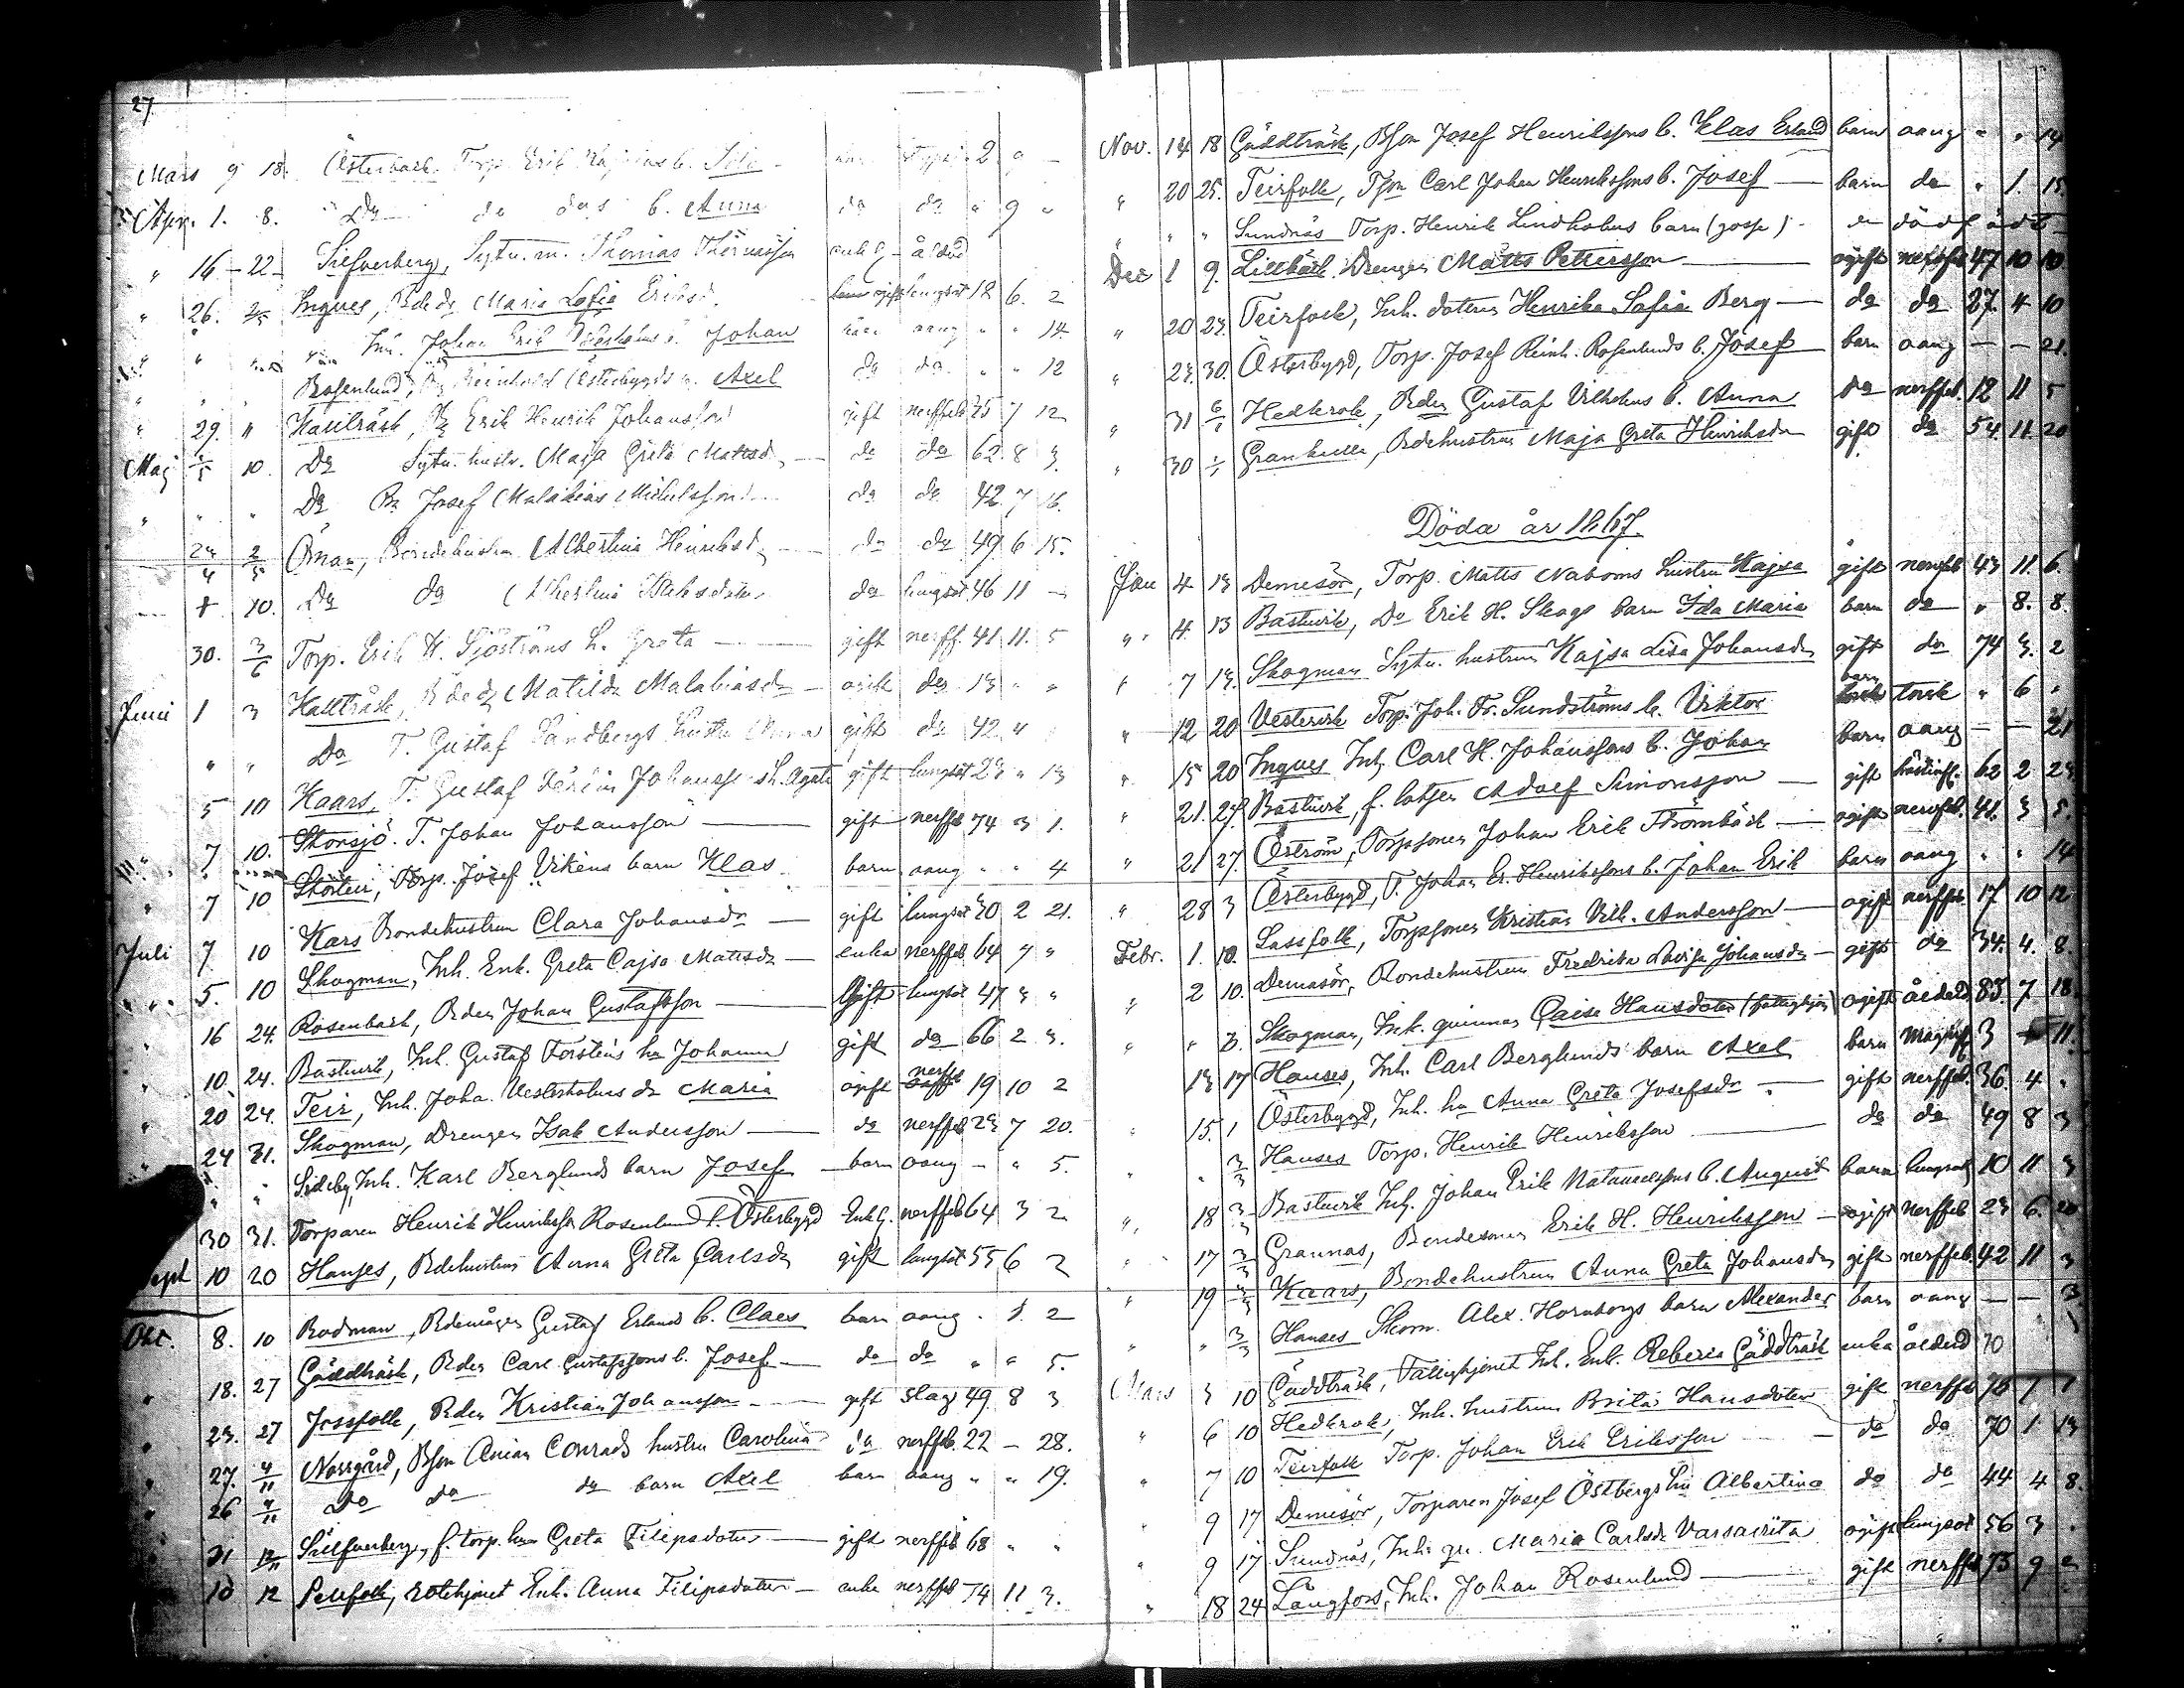 27.
Mars 9 18. Österback Torp. Erik b. 2 9 –
Apr. 1. 8. Do do do s b. Anna do do " 9 "
" 16 – 22 – Silfverberg, Sytn. m. Thomas Thomasson enkl. ålded
" 26. Ingves, Bdedr Maria Sofia Eriksd. lungsot 12 6. 2
" " Inh. Johan Erik b. Johan barn aang " " 14.
" " Rosenlund, Reinhold Österbygds b. Axel do do " " 12
" 29. " Kallträsk, Erik Henrik Johansson gift nerffeb 25 7 12
Maj 10. Do Sytn. hustr. Maja Greta Mattsd. – do do 62 8 3.
" " " Do Josef Malakias Mickelsson do do 42 7 16.
24/4 2/5 Öman, Bondehustrun Albertina Henriksdr – do do 49 6 15.
10. Do do Albertina do lungsot 46 11 –
30. 3/6 Torp. Erik H. Sjöströms h. Greta – gift nerff. 41 11. 5
Juni 1 3 Kallträsk, Bdedr Matilda Malakiasdr – ogift do 13 " "
" " Do T. Gustaf Sandbergs hustru Anna gift do 42 "
5 10 Kaars, T. Gustaf Johanss h. Agata gift lungsot 23 " 13
7 10. Storsjö. T. Johan Johansson – gift nerffeb 74 3 1.
" 7 10 Torp. Josef Vikens barn Klas barn aang " " 4
Juli 7 10 Kars Bondehustrun Clara Johansdr – gift lungsot 30 2 21.
5. 10 Skogman, Inh. Enk. Greta Cajsa Mattsdr – enka nerffeb 64 7 "
16 24. Rosenback, Bden Johan Gustafsson – Gift lungsot 47 3 "
10. 24. Bastuvik, Inh. Gustaf Forsténs hu Johanna gift do 66 2 3.
20 24. Teir, Inh. Joha. Vesterholms dr Maria ogift nerff 19 10 2
24 31. Skogman, Drengen Isak Andersson – do nerffeb 23 7 20.
" " Sideby, Inh. Karl Berglunds barn Josef – barn aang – " 5.
30 31. Torparen Henrik Henriksson Rosenlund l. Österbygd Enkl. nerffeb 64 3 2
Sept 10 20 Hanses, Bdehustrun Anna Greta Carlsdr gift lungsot 55 6 2
Okt. 8. 10 Rodman, Bdemågen Gustaf Erlunds b. Claes barn aang . 1. 2
" 18. 27 Gäddträsk, Bden Carl Gustafssons b. Josef – do do " " 5.
23. 27 Jossfolk, Bden Kristian Johansson – gift Slag 49 8 3
" 27. 4/11 Norrgård, Bson Anian Conrads hustru Carolina do nerffeb. 22 – 28.
" 26 4/11 Do do do barn Axel barn aang " " 19.
31 12/11 Silfverberg, f. torp. hu Greta Filipsdotter – gift nerffeb 68 " "
10 12 Pellfolk, rotehjonet Enk. Anna Filipsdotter – enka nerffeb 74 11 3.
Nov. 14 18 Gäddträsk, Bson Josef Henrikssons b. Klas Erland barn aang " " 14
" 20 25. Teirfolk, Tson Carl Johan Henrikssons b. Josef – barn do " 1. 15
" " " Sundnäs Torp. Henrik Lindholms barn (gosse) – do dödfödt
Dec 1 9. Lillbäck. Drengen Matts Pettersson – ogift nerffeb 47 10 10
" 20 23. Teirfolk, Inh. dottern Henrika Sofia Berg – do do 27. 4 10
" 23. 30. Österbygd, Torp. Josef Reinh. Rosenlunds b. Josef barn aang – – 21.
" 31 6/1 Hedkrok, Bden Gustaf Vilhelms b. Anna do nerffeb. 12 11 5
" 30 Grankulla, Bdehustrun Maja Greta Henriksdr gift do 54 11. 20
Döda år 1867.
Jan 4 13 Demesör, Torp. Matts Naboms hustru Kajsa gift nerffeb 43 11. 6.
" 4. 13 Bastuvik, Do Erik H. Skogs barn Ida Maria barn do " 8. 8.
" 7 13. Skogman Sytn. hustrun Kajsa Lisa Johansdr gift do 74 3. 2
" 12 20 Vestervik Torp. Joh. Fr. Sundströms b. Viktor barn torsk " 6 "
" 15 20 Ingves Inh. Carl H. Johanssons b. Johan barn aang – – 21
" 21. 27. Bastuvik, f. lotsen Adolf Simonsson – gift 62 2 23
" 21 27. Öström, Torpsonen Johan Erik Strömbäck – ogift nerffeb. 41. 3 5.
" 28 3 Österbygd, T. Johan Er. Henrikssons b. Johan Erik barn aang " " 14
Febr. 1. 10. Lassfolk, Torpsonen Kristian Vilh. Andersson – ogift nerffeb 17 10 12
" 2 10. Demasör, Bondehustrun Fredrika Lovisa Johansdr – gift do 34. 4. 8.
" " 3. Skogman, Inh. quinnan Caisa Hansdotter (fattighjon) ogift ålded. 83. 7 18.
13 17 Hanses, Inh. Carl Berglunds barn Axel barn 3 11.
" 15. 1 Österbygd, Inh. hu Anna Greta Josefsdr – gift nerffeb. 36. 4 "
" " 3/3 Hanses Torp. Henrik Henriksson – do do 49 8 3
" 18 3/3 Bastuvik Inh. Johan Erik Natanaelssons b. August barn lungsot 10 11 3
" 17 3/3 Grannas, Bondesonen Erik H. Henriksson – ogift nerffeb 23 6. 20
" 19 3/3 Kaars, Bondehustrun Anna Greta Johansdr gift nerffeb 42 11 3
" " 3/3 Hanses Skom. Alex. Hornborgs barn Alexander barn aang – – 3
Mars 3 10 Gäddträsk, Fattighjonet Inh. Enk. Rebecca Gäddträsk enka ålded 70
" 6 10 Hedkrok, Inh. hustrun Brita Hansdotter gift nerffeb 76 7 1
" 7 10 Teirfolk Torp. Johan Erik Eriksson – do do 70 1 13
" 9 17 Demesör, Torparen Josef Östbergs hu Albertina do do 44 4 8.
" 9 17 Sundnäs, Inh. qu. Maria Carlsdr ogift lungsot 56 3 .
" 18 24 Långfors, Inh. Johan Rosenlund – gift nerffeb 73 9